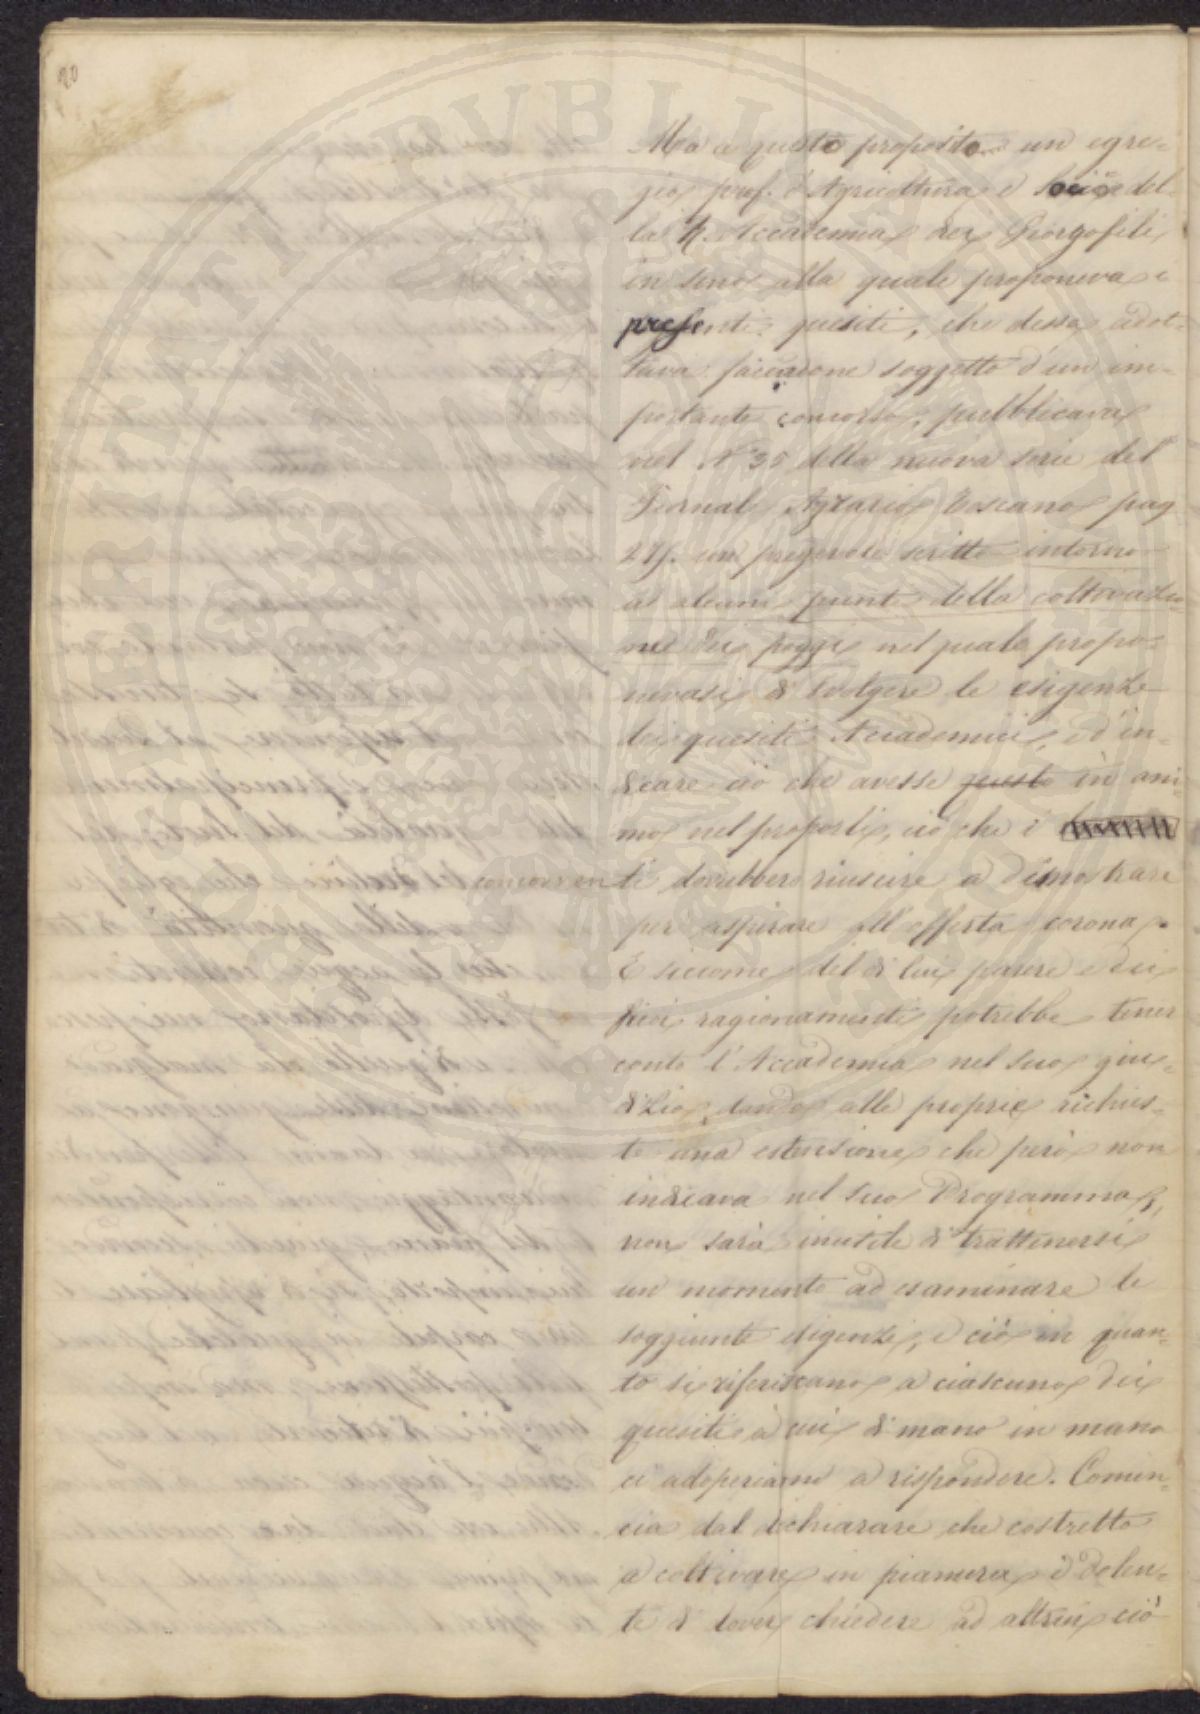 20
Ma a questo proposito un egre-
gio prof. d'Agricoltura e socio del-
la R. Accademia dei Giorgofili
in seno alla quale proponeva i
presenti quesiti, che dessa adot-
tava facendone soggetto d'un im-
portante concorso, pubblicava
nel N° 35 della nuova serie del
Giornale Agrario Toscano pag
27 un pregevole scritto intorno
ad alcuni punti della coltivazio
ne dei poggi nel quale propo-
nevasi di svolgere le esigenze
dei quesiti Accademici, e d'in-
dicare ciò che avesse questo in ani
mo nel proporli, ciò che i
concorrenti dovrebbero riuscire a dimostrare
per aspirare all'offerta corona.
E siccome del di lui parere e dei
suoi ragionamenti potrebbe tener
conto l'Accademia nel suo giu-
dizio, dando alle proprie richies-
te una estensione che però non
indicava nel suo Programma,
non sarà inutile di trattenersi
un momento ad esaminare le
soggiunte esigenze, e ciò in quan-
to si riferiscano a ciascuno dei
quesiti a cui di mano in mano
ci adoperiamo a rispondere. Comin-
cia dal dichiarare che costretto
a coltivare in pianura è dolen-
te di dover chiedere ad altrui ciò